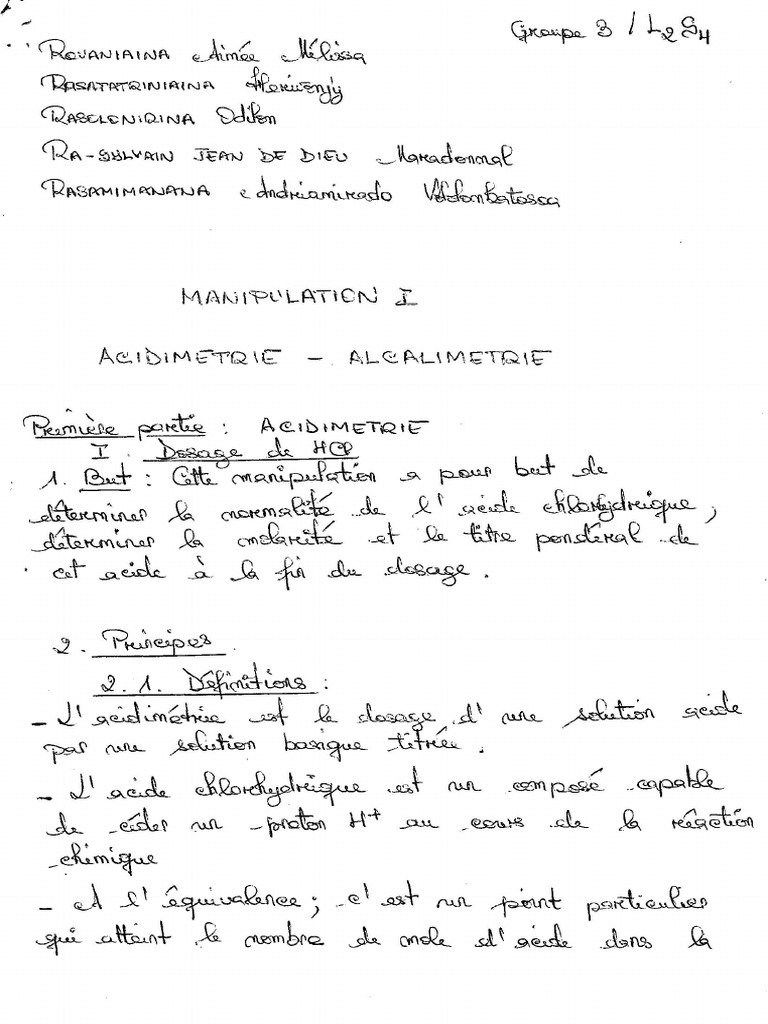 Groupe 3 / L2S4
ROVANIAINA Aimée Mélissa
RASATATRINIAINA Herivenjy
RASELENIRINA Odilon
RA-SYLVAIN JEAN DE DIEU Maradonnal
RASAMIMANANA Andriamirado
MANIPULATION I
ACIDIMETRIE - ALCALIMETRIE
Première partie : ACIDIMETRIE
I. Dosage de HCl
1. But : Cette manipulation a pour but de
déterminer la normalité de l'acide chlorhydrique ;
déterminer la molarité et le titre pondéral de
cet acide à la fin du dosage.
2. Principes
2.1. Définitions :
- L'acidimétrie est le dosage d'une solution acide
par une solution basique titrée.
- L'acide chlorhydrique est un composé capable
de céder un proton H+ au cours de la réaction
chimique
- A l'équivalence ; c'est un point particulier
qui atteint le nombre de mole d'acide dans la